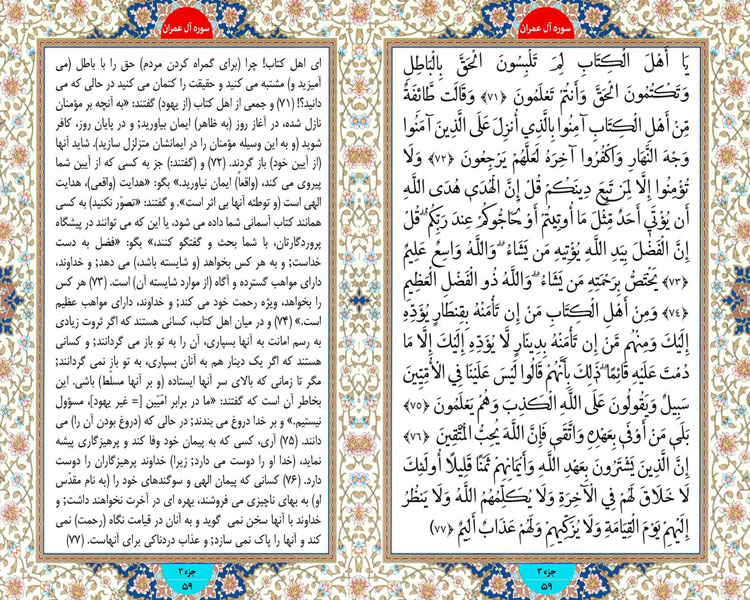 سوره آل عمران
یَا أَهْلَ الْکِتَابِ لِمَ تَلْبِسُونَ الْحَقَّ بِالْبَاطِلِ
وَتَکْتُمُونَ الْحَقَّ وَأَنتُمْ تَعْلَمُونَ ﴿۷۱﴾ وَقَالَت طَّائِفَةٌ
مِّنْ أَهْلِ الْکِتَابِ آمِنُوا بِالَّذِی أُنزِلَ عَلَى الَّذِینَ آمَنُوا
وَجْهَ النَّهَارِ وَاکْفُرُوا آخِرَهُ لَعَلَّهُمْ یَرْجِعُونَ ﴿۷۲﴾ وَلَا
تُؤْمِنُوا إِلَّا لِمَن تَبِعَ دِینَکُمْ قُلْ إِنَّ الْهُدَى هُدَى اللَّهِ
أَن یُؤْتَى أَحَدٌ مِّثْلَ مَا أُوتِیتُمْ أَوْ یُحَاجُّوکُمْ عِندَ رَبِّکُمْ ۗ قُلْ
إِنَّ الْفَضْلَ بِیَدِ اللَّهِ یُؤْتِیهِ مَن یَشَاءُ ۗ وَاللَّهُ وَاسِعٌ عَلِیمٌ
﴿۷۳﴾ یَخْتَصُّ بِرَحْمَتِهِ مَن یَشَاءُ ۗ وَاللَّهُ ذُو الْفَضْلِ الْعَظِیمِ
﴿۷۴﴾ وَمِنْ أَهْلِ الْکِتَابِ مَنْ إِن تَأْمَنْهُ بِقِنطَارٍ یُؤَدِّهِ
إِلَیْکَ وَمِنْهُم مَّنْ إِن تَأْمَنْهُ بِدِینَارٍ لَّا یُؤَدِّهِ إِلَیْکَ إِلَّا مَا
دُمْتَ عَلَیْهِ قَائِمًا ۗ ذَٰلِکَ بِأَنَّهُمْ قَالُوا لَیْسَ عَلَیْنَا فِی الْأُمِّیِّینَ
سَبِیلٌ وَیَقُولُونَ عَلَى اللَّهِ الْکَذِبَ وَهُمْ یَعْلَمُونَ ﴿۷۵﴾
بَلَى مَنْ أَوْفَى بِعَهْدِهِ وَاتَّقَى فَإِنَّ اللَّهَ یُحِبُّ الْمُتَّقِینَ ﴿۷۶﴾
إِنَّ الَّذِینَ یَشْتَرُونَ بِعَهْدِ اللَّهِ وَأَیْمَانِهِمْ ثَمَنًا قَلِیلًا أُولَٰئِکَ
لَا خَلَاقَ لَهُمْ فِی الْآخِرَةِ وَلَا یُکَلِّمُهُمُ اللَّهُ وَلَا یَنظُرُ
إِلَیْهِمْ یَوْمَ الْقِیَامَةِ وَلَا یُزَکِّیهِمْ وَلَهُمْ عَذَابٌ أَلِیمٌ ﴿۷۷﴾
جزء ۳
۵۹
سوره آل عمران
ای اهل کتاب! چرا (برای گمراه کردن مردم) حق را با باطل (می
آمیزید و) مشتبه می کنید و حقیقت را کتمان می کنید در حالی که می
دانید؟! (۷۱) و جمعی از اهل کتاب (از یهود) گفتند: «به آنچه بر مؤمنان
نازل شده، در آغاز روز (به ظاهر) ایمان بیاورید؛ و در پایان روز، کافر
شوید (و به این وسیله مؤمنان را در ایمانشان متزلزل سازید). شاید آنها
(از آیین خود) باز گردند. (۷۲) و (گفتند:) جز به کسی که از آیین شما
پیروی می کند، (واقعاً) ایمان نیاورید.» بگو: «هدایت (واقعی)، هدایت
الهی است (و توطئه آنها بی اثر است)». و گفتند: «تصوّر نکنید) به کسی
همانند کتاب آسمانی شما داده می شود، یا این که می توانند در پیشگاه
پروردگارتان، با شما بحث و گفتگو کنند،» بگو: «فضل به دست
خداست؛ و به هر کس بخواهد (و شایسته باشد،) می دهد؛ و خداوند،
دارای مواهب گسترده و آگاه (از موارد شایسته آن) است. (۷۳) هر کس
را بخواهد، ویژه رحمت خود می کند؛ و خداوند، دارای مواهب عظیم
است.» (۷۴) و در میان اهل کتاب، کسانی هستند که اگر ثروت زیادی
به رسم امانت به آنها بسپاری، آن را به تو باز می گردانند؛ و کسانی
هستند که اگر یک دینار هم به آنان بسپاری، به تو باز نمی گردانند؛
مگر تا زمانی که بالای سر آنها ایستاده (و بر آنها مسلّط) باشی. این
بخاطر آن است که گفتند: «ما در برابر امّیّین [= غیر یهود]، مسؤول
نیستیم.» و بر خدا دروغ می بندند؛ در حالی که (دروغ بودن آن را) می
دانند. (۷۵) آری، کسی که به پیمان خود وفا کند و پرهیزگاری پیشه
نماید، (خدا او را دوست می دارد؛ زیرا) خداوند پرهیزگاران را دوست
دارد. (۷۶) کسانی که پیمان الهی و سوگندهای خود را (به نام مقدّس
او) به بهای ناچیزی می فروشند، بهره ای در آخرت نخواهند داشت؛ و
خداوند با آنها سخن نمی گوید و به آنان در قیامت نگاه (رحمت) نمی
کند و آنها را پاک نمی سازد؛ و عذاب دردناکی برای آنهاست. (۷۷)
جزء ۳
۵۹